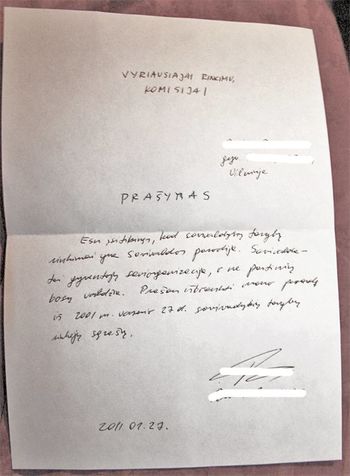 VYRIAUSIAJAI RINKIMŲ
KOMISIJAI
gyv.
Vilniuje
PRAŠYMAS
Esu įsitikinęs, kad savivaldybių tarybų
rinkimai yra savivaldos parodija. Savivalda -
tai gyventojų saviorganizacija, o ne partinių
bosų valdžia. Prašau išbraukti mano pavardę
iš 2011 m. vasario 27 d. savivaldybių tarybų
rinkėjų sąrašų.
2011.01.27.